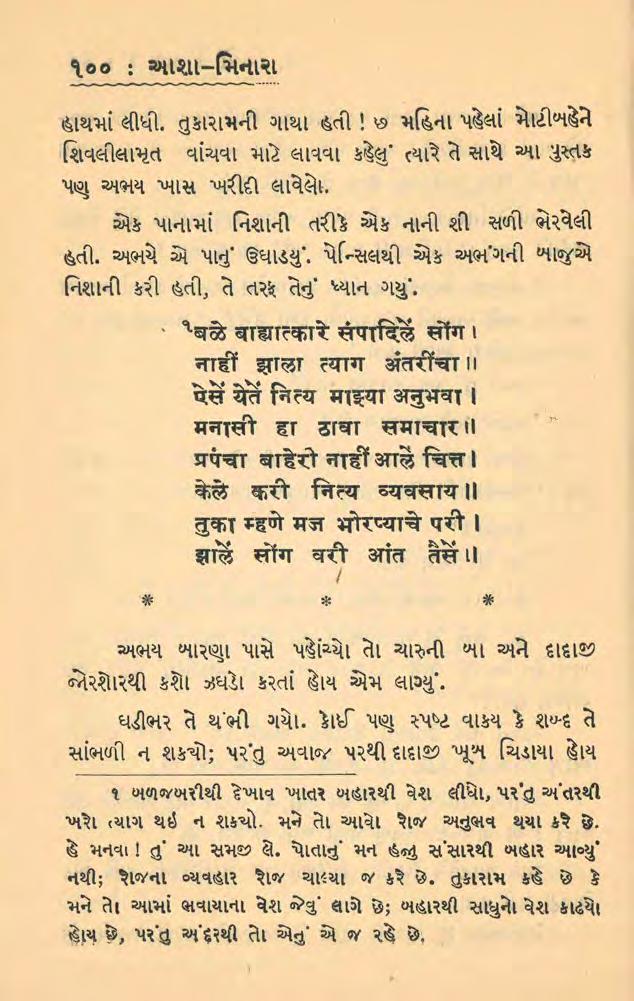 ૧૦૦ : આશા–મિનારા
હાથમાં લીધી. તુકારામની ગાથા હતી ! ૭ મહિના પહેલાં મેાટીબહેને
શિવલીલામૃત વાંચવા માટે લાવવા કહેલું ત્યારે તે સાથે આ પુસ્તક
પણ અભય ખાસ ખરીદી લાવેલેા.
એક પાનામાં નિશાની તરીકે એક નાની શી સળી ભેરવેલી
હતી. અભયે એ પાનું ઉઘાડયું. પેન્સિલથી એક અભંગની બાજુએ
નિશાની કરી હતી, તે તરફ તેનું ધ્યાન ગયું.
૧बळे बाह्यात्कारे संपादिलें सोंग ।
नाहीं झाला त्याग अंतरींचा ॥
ऐसें येतें नित्य माझ्या अनुभवा ।
मनासी हा ठावा समाचार ॥
प्रपंचा बाहेरी नाहीं आलें चित्त ।
केले करी नित्य व्यवसाय ॥
तुका म्हणे मज भोरप्याचे परी ।
झालें सोंग वरी आंत तैसें ॥
* * *
અભય બારણા પાસે પહેાંચ્યેા તેા ચારુની બા અને દાદાજી
જોરશેારથી કશેા ઝઘડેા કરતાં હેાય એમ લાગ્યું.
ઘડીભર તે થંભી ગયેા. કેાઈ પણ સ્પષ્ટ વાક્ય કે શબ્દ તે
સાંભળી ન શકયો; પરંતુ અવાજ પરથી દાદાજી ખૂબ ચિડાયા હેાય
૧ બળજબરીથી દેખાવ ખાતર બહારથી વેશ લીધેા, પરંતુ અંતરથી
ખરેા ત્યાગ થઇ ન શકયો. મને તેા આવેા રેાજ અનુભવ થયા કરે છે.
હે મનવા ! તું આ સમજી લે. પેાતાનું મન હજી સંસારથી બહાર આવ્યું
નથી; રેાજના વ્યવહાર રેાજ ચાલ્યા જ કરે છે. તુકારામ કહે છે કે
મને તેા આમાં ભવાયાના વેશ જેવું લાગે છે; બહારથી સાધુનેા વેશ કાઢયેા
હેાય છે, પરંતુ અંદરથી તેા એનું એ જ રહે છે.